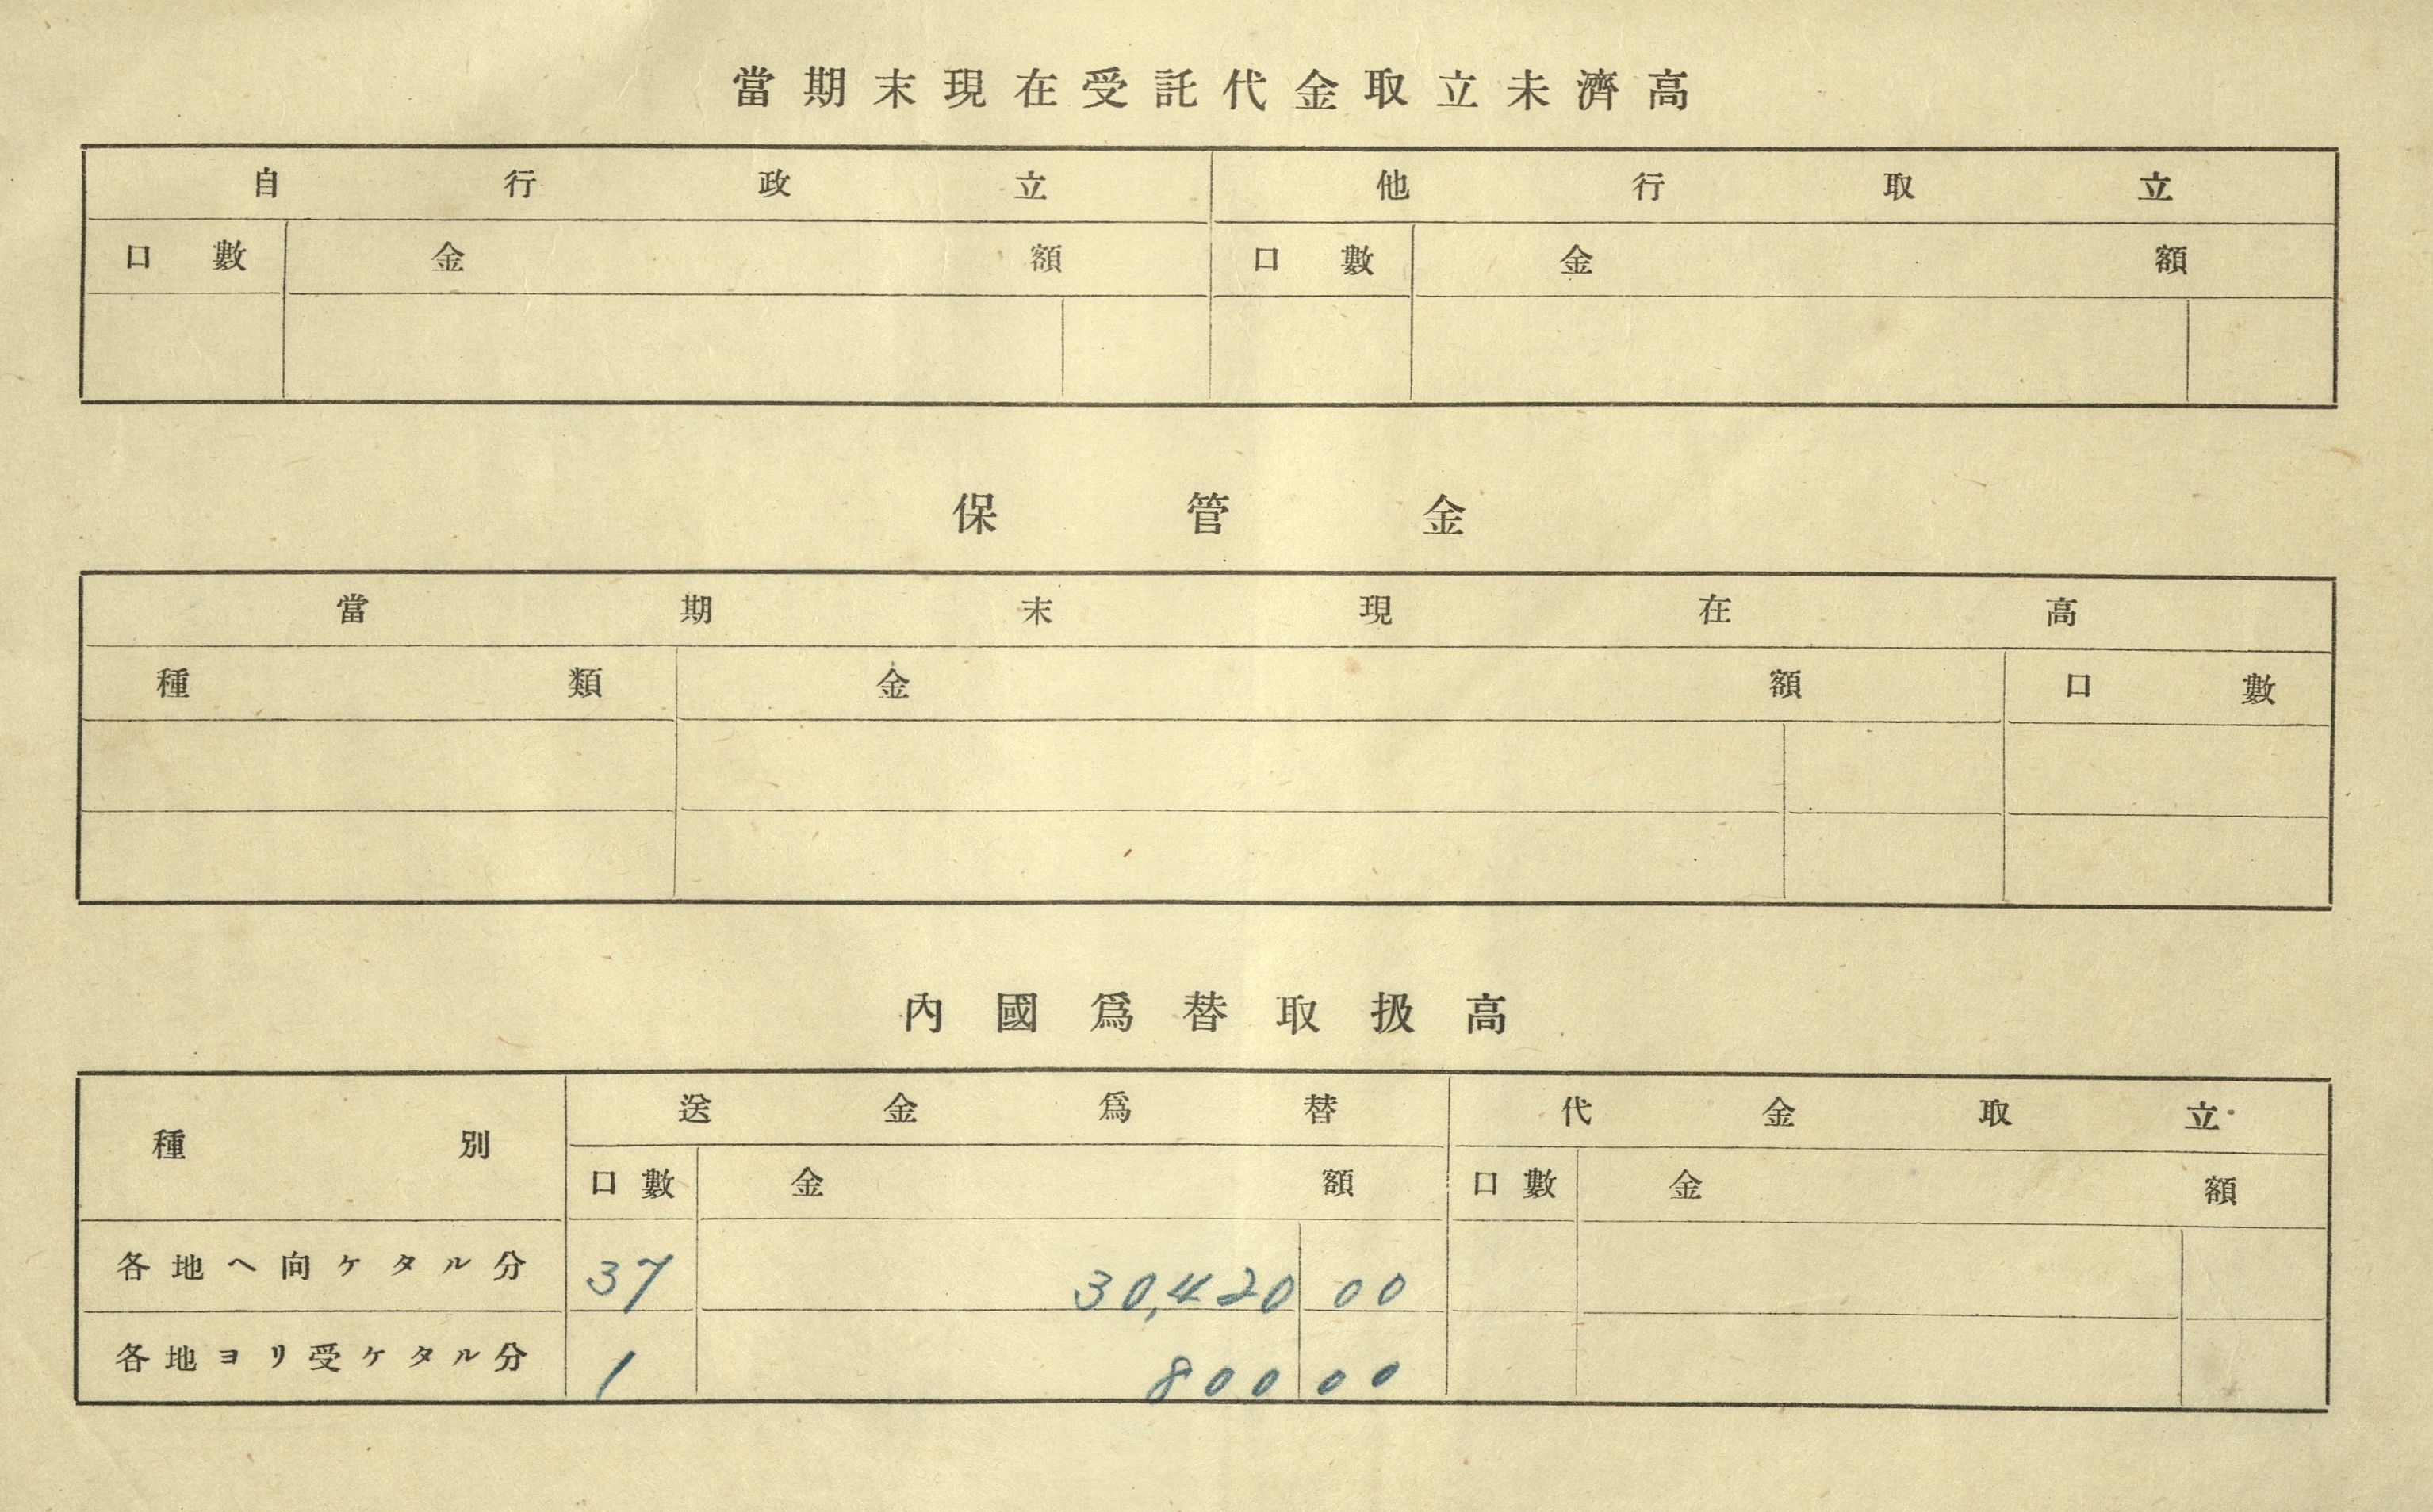 當期末現在受託代金取立未濟高
自行政立 他行取立
口數 金額 口數 金額
保管金
當期末現在高
種類 金額 口數
內國爲替取扱高
種別 送金爲替 代金取立
口數 金額 口數 金額
各地ヘ向ケタル分 37 30,420 00
各地ヨリ受ケタル分 1 800 00